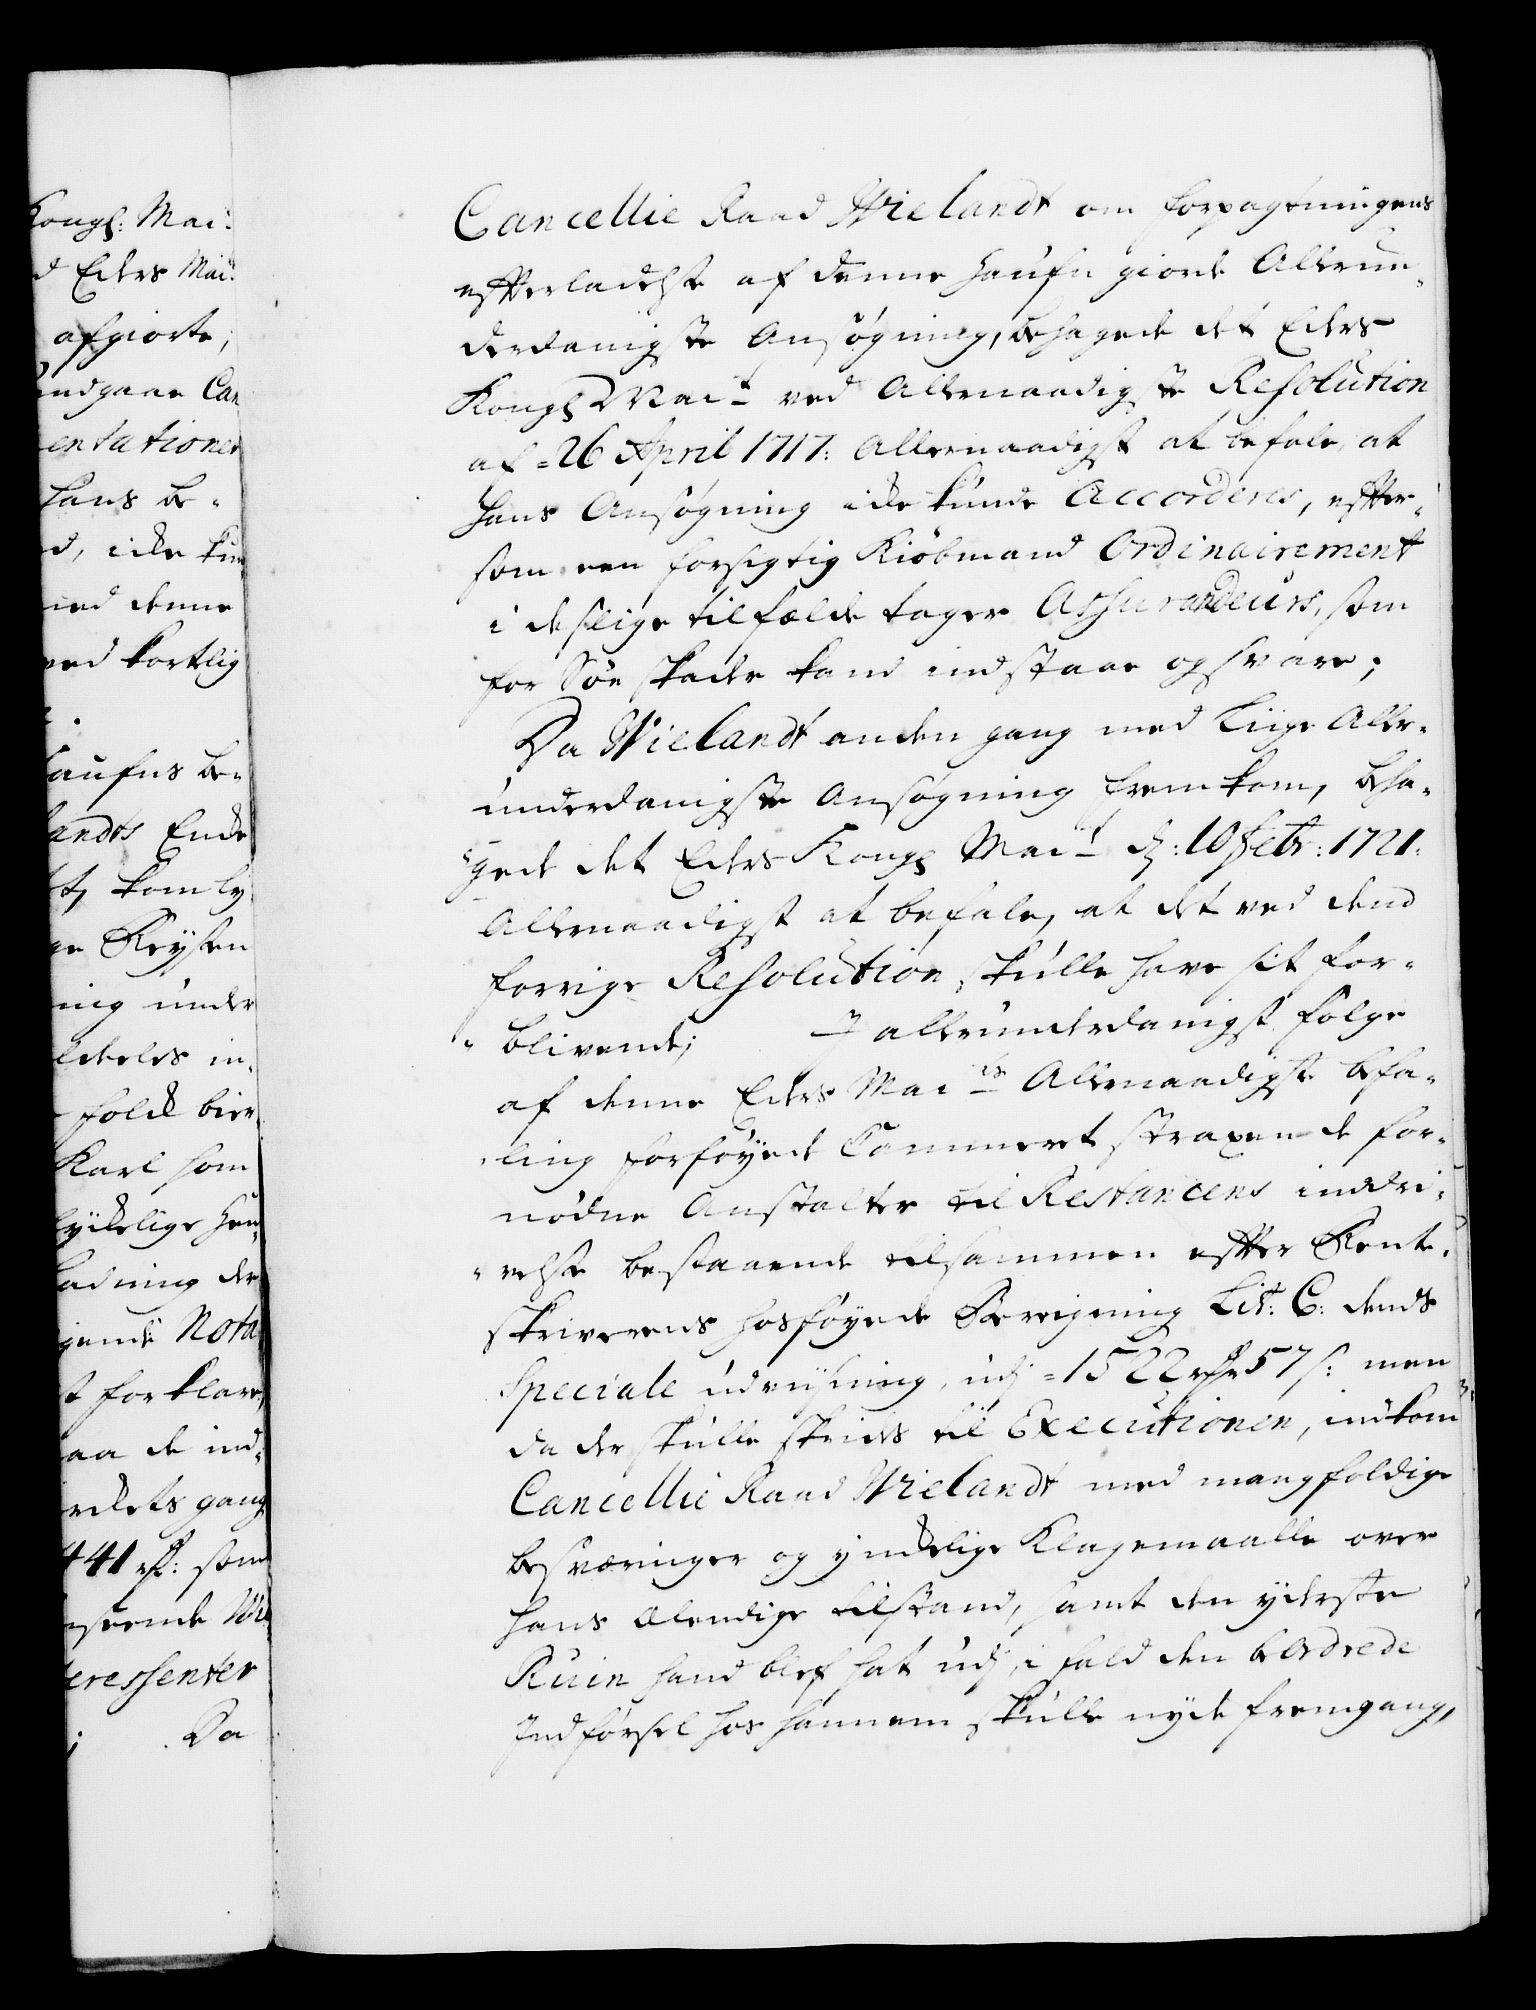 Kongl: Mai.
d Eders Mai.
afgiorte;
indgaae Can
entationer
hans be-
d, icke kun
med denne
ved kortlig
aufns be-
landts Ende
t, kom ly
ge Reysen
ning under
ldeles in-
folck bier
Karl som
lyckelige hen-
ladning der
gende Nota
t forklare,
aa de ind-
rckets gang
441 rd: som
nseende Wie
teressenter
; Da
Cancellie Raad Wielandt om forpagtningens
efterladelse af denne haufn giorde Allerun-
derdanigste Ansøgning, behagede det Eders
Kongl Mait ved Allernaadigste Resolution
af =26 April 1717: Allernaadigst at befale, at
hans Ansøgning icke kunde Accorderes, efter-
som een forsigtig Kiøbmand Ordinairement
i deslige tilfælde tager Assurandeurs, som
for Søe skade kand indstaae og svare;
Da Wielandt anden gang med Liige Aller-
underdanigste Ansøgning fremkom, beha-
gede det Eders Kongl Mait d: 10 Febr: 1721.
Allernaadigst at befale, at det ved dend
forrige Resolution skulle have sit for-
blivende; I allerunderdanigst følge
af denne Eders Maits Allernaadigste befa-
ling forføyede Cammeret straxen de for-
nødne Anstalter til Restancens inddri-
velse bestaaende tilsammen efter Rente-
skriverens hosføyede Beregning Lit: C: dends
Speciale udviisning, udj =1522 rdr 57 s: men
da der skulle skrides til Executionen, indkom
Cancellie Raad Wielandt med mangfoldige
besværinger og ynckelige Klagemaalle over
hans Elendige tilstand, samt den yderste
Ruin hand blef sat udj, i fald den beordrede
Indførsel hos hannem skulle nyde fremgang,